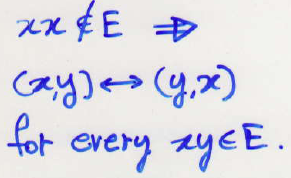 xx ∉ E ⇒
(x,y) ↔ (y,x)
for every xy ∈ E.